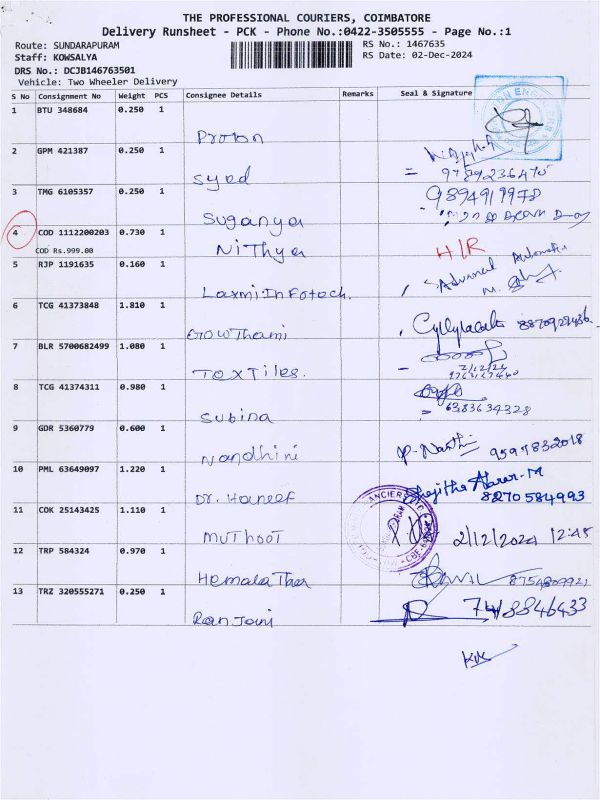 THE PROFESSIONAL COURIERS, COIMBATORE
Delivery Runsheet - PCK - Phone No.:0422-3505555 - Page No.:1
Route: SUNDARAPURAM
RS No.: 1467635
Staff: KOWSALYA
RS Date: 02-Dec-2024
DRS No.: DCJB146763501
Vehicle: Two Wheeler Delivery
S No Consignment No Weight PCS Consignee Details Remarks Seal & Signature
1 BTU 348684 0.250 1
Proton
2 GPM 421387 0.250 1
Syed
3 TMG 6105357 0.250 1
Suganya
9894919978
4 COD 1112200203 0.730 1
COD Rs.999.00
Nithya
H/R
5 RJP 1191635 0.160 1
Laxmi.Infotech.
6 TCG 41373848 1.810 1
Gowthami
7 BLR 5700682499 1.080 1
Textiles.
2/12/24
8 TCG 41374311 0.980 1
Subina
6383634328
9 GDR 5360779 0.600 1
Nandhini
9597832018
10 PML 63649097 1.220 1
Dr. Haneef
8270584993
11 COK 25143425 1.110 1
Muthoot
2/12/2024 12:45
12 TRP 584324 0.970 1
Hemalatha
13 TRZ 320555271 0.250 1
Ranjani